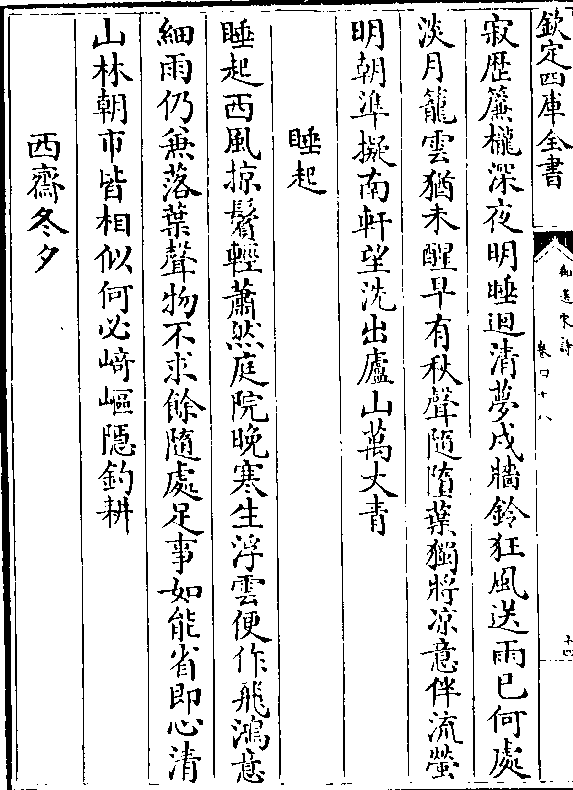 欽定四庫全書
御選宋詩
卷四十八
十四
寂歴簾櫳深夜明睡迴清夢戍牆鈴狂風送雨已何處
淡月籠雲猶未醒早有秋聲隨墮葉獨將凉意伴流螢
明朝準擬南軒望洗出廬山萬丈青
睡起
睡起西風掠鬢輕蕭然庭院晚寒生浮雲便作飛鴻意
細雨仍兼落葉聲物不求餘隨處足事如能省即心清
山林朝市皆相似何必﨑嶇隱釣耕
西齋冬夕